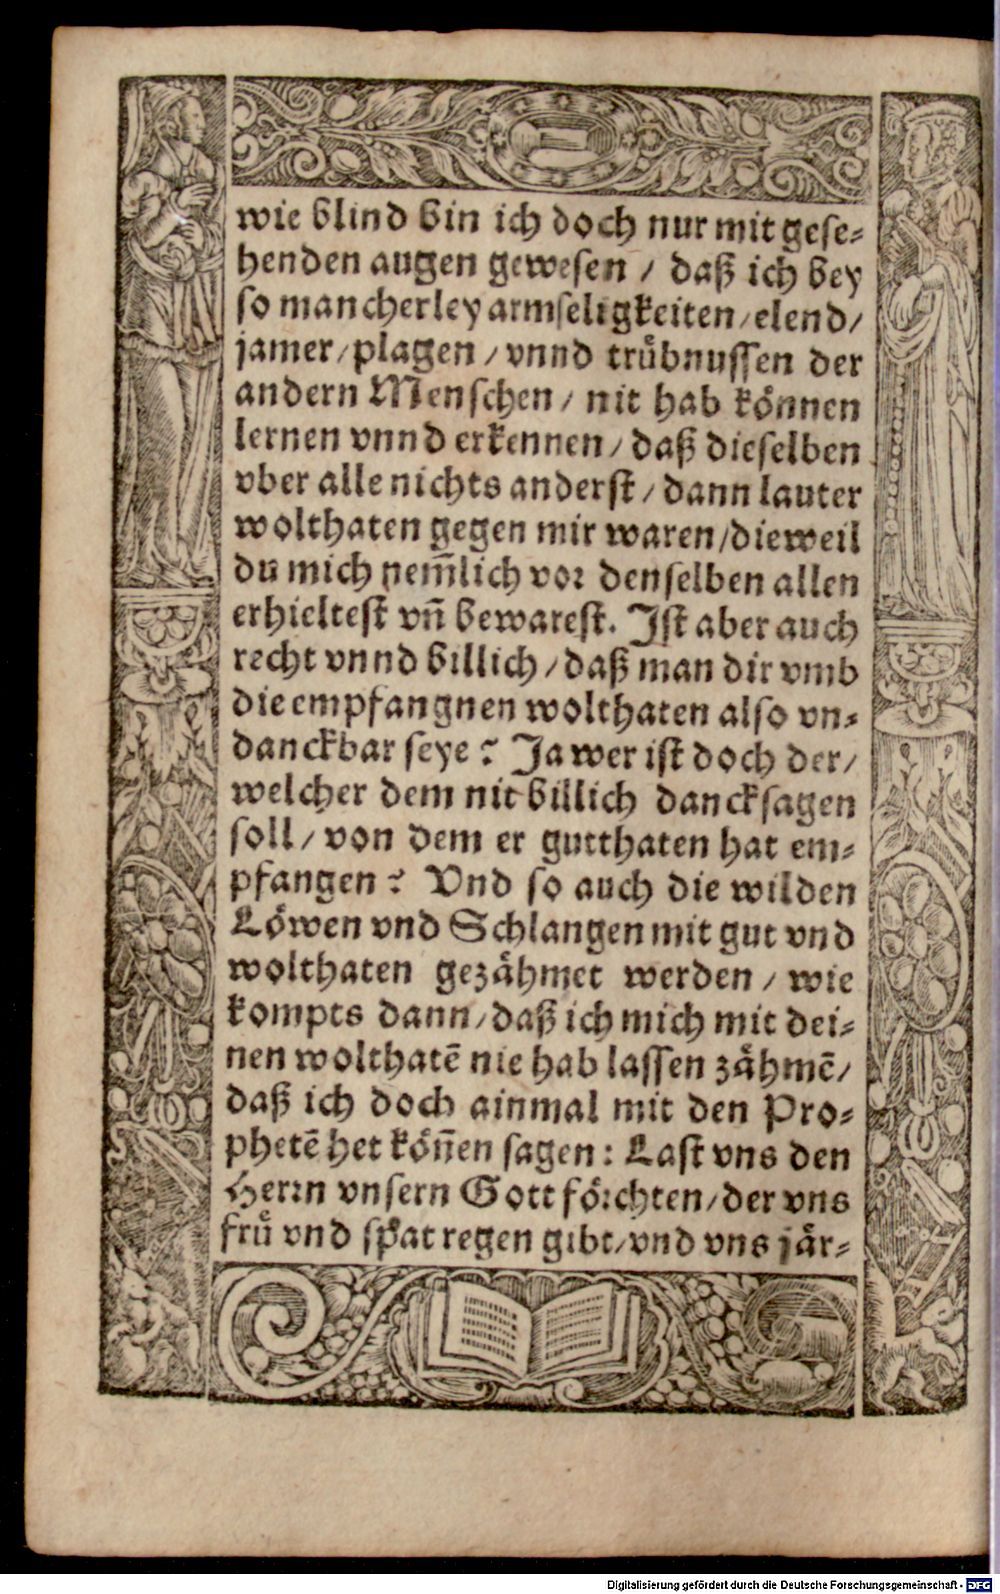 wie blind bin ich doch nur mit gese⸗
henden augen gewesen / daß ich bey
so mancherley armseligkeiten / elend /
jamer / plagen / vnnd truͤbnussen der
andern Menschen / nit hab koͤnnen
lernen vnnd erkennen / daß dieselben
vber alle nichts anderst / dann lauter
wolthaten gegen mir waren / dieweil
du mich nem̃lich vor denselben allen
erhieltest vñ bewarest. Ist aber auch
recht vnnd billich / daß man dir vmb
die empfangnen wolthaten also vn⸗
danckbar seye? Ja wer ist doch der /
welcher dem nit billich dancksagen
soll / von dem er gutthaten hat em⸗
pfangen? Vnd so auch die wilden
Loͤwen vnd Schlangen mit gut vnd
wolthaten gezaͤhmet werden / wie
kompts dann / daß ich mich mit dei⸗
nen wolthatẽ nie hab lassen zaͤhmẽ /
daß ich doch ainmal mit den Pro⸗
phetẽ het koͤñen sagen: Last vns den
Herrn vnsern Gott foͤrchten / der vns
fruͤ vnd spat regen gibt / vnd vns jaͤr⸗
Digitalisierung gefördert durch die Deutsche Forschungsgemeinschaft - DFG